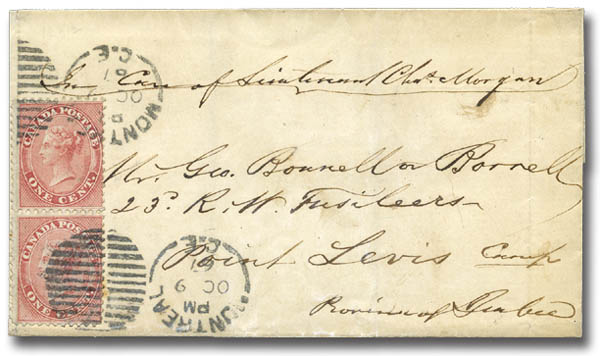 In Care of Lieutenant Chas. Morgan
Mr. Geo. Bonnell or Bornell
23d. R. W. Fusileers
Point Levis Camp
Province of Quebec
CANADA POSTAGE
ONE CENT.
CANADA POSTAGE
ONE CENT.
MONT
OC
67
C.E.
MONTREAL
PM
OC 9
67
C.E.